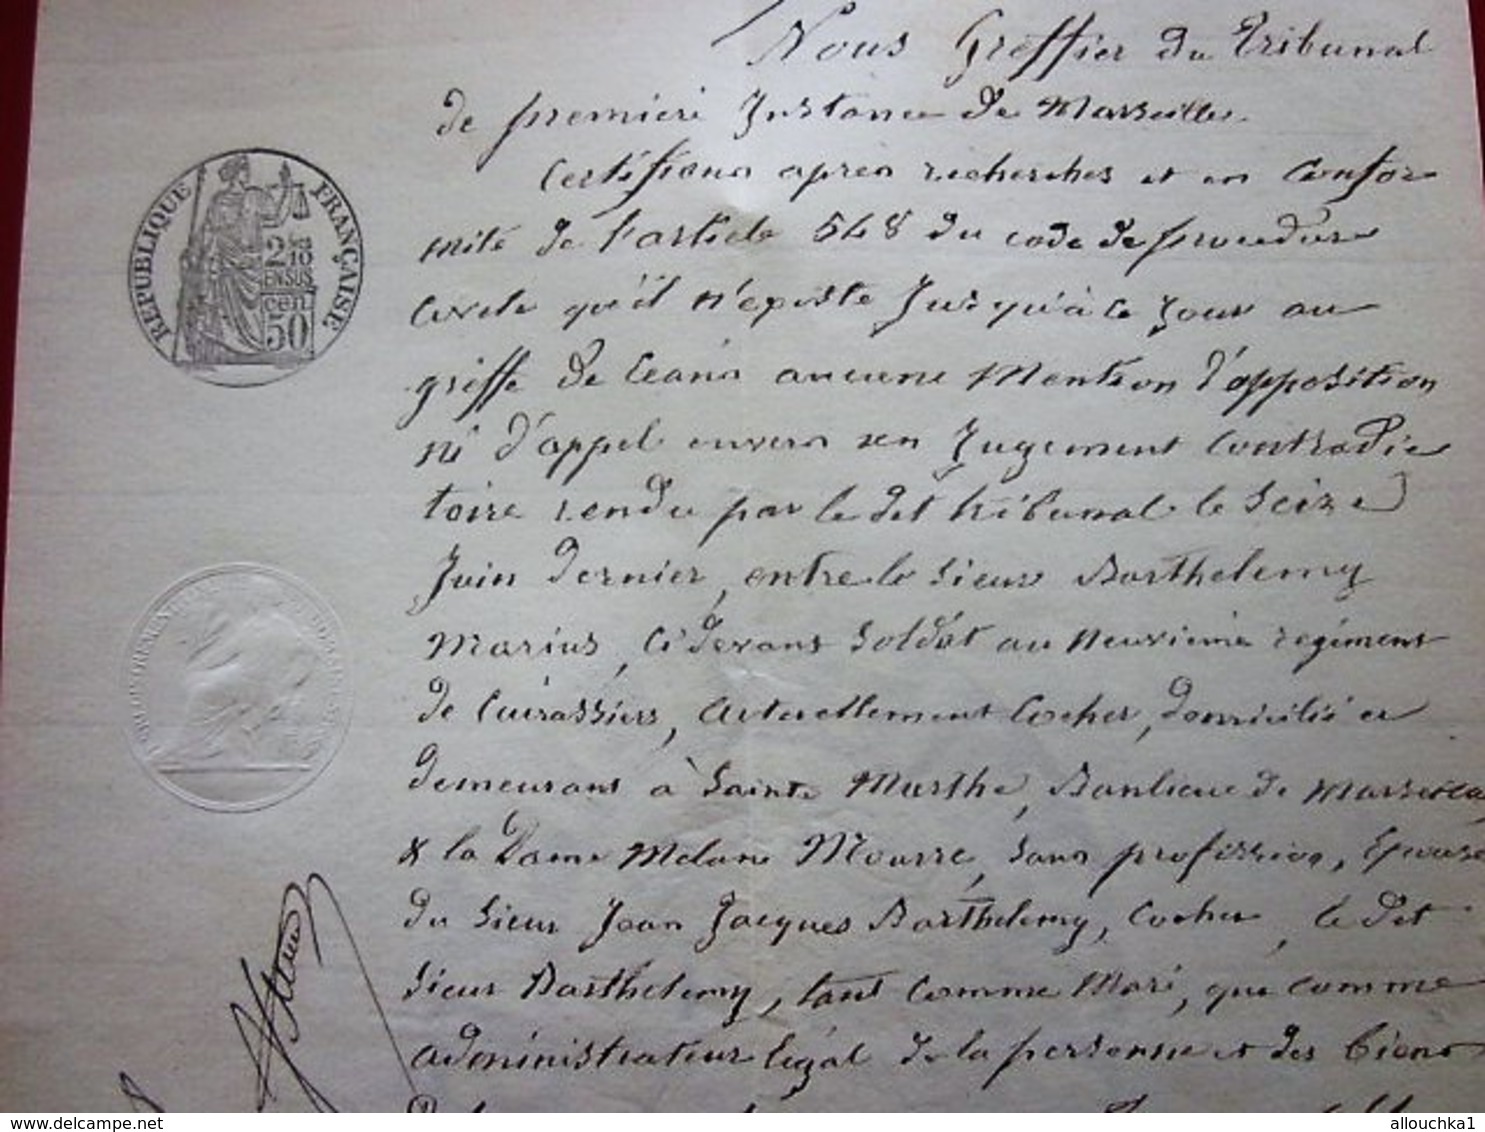 Nous Greffier du Tribunal
de première Instance de Marseille.
Certifions après recherches et en confor
mité de l'article 548 du code de procédure
Civile qu'il n'existe Jusqu'à ce Jour au
greffe de Céans aucune Mention d'opposition
ni d'appel envers un Jugement Contradic
toire rendu par le dit tribunal le Seize
Juin dernier, entre le Sieur Barthelemy
Marius, Ci devant Soldat au Neuvième régiment
de Cuirassiers, Actuellement Cocher, domicilié et
demeurant à Sainte Marthe, Banlieue de Marseille,
& la Dame Mélanie Mourre, Sans profession, Epouse
du Sieur Jean Jacques Barthelemy, Cocher, le dit
Sieur Barthelemy, tant Comme Mari, que comme
administrateur légal de la personne et des biens
REPUBLIQUE FRANÇAISE
2 10
EN SUS
cen
50
delcampe.net
allouchka1